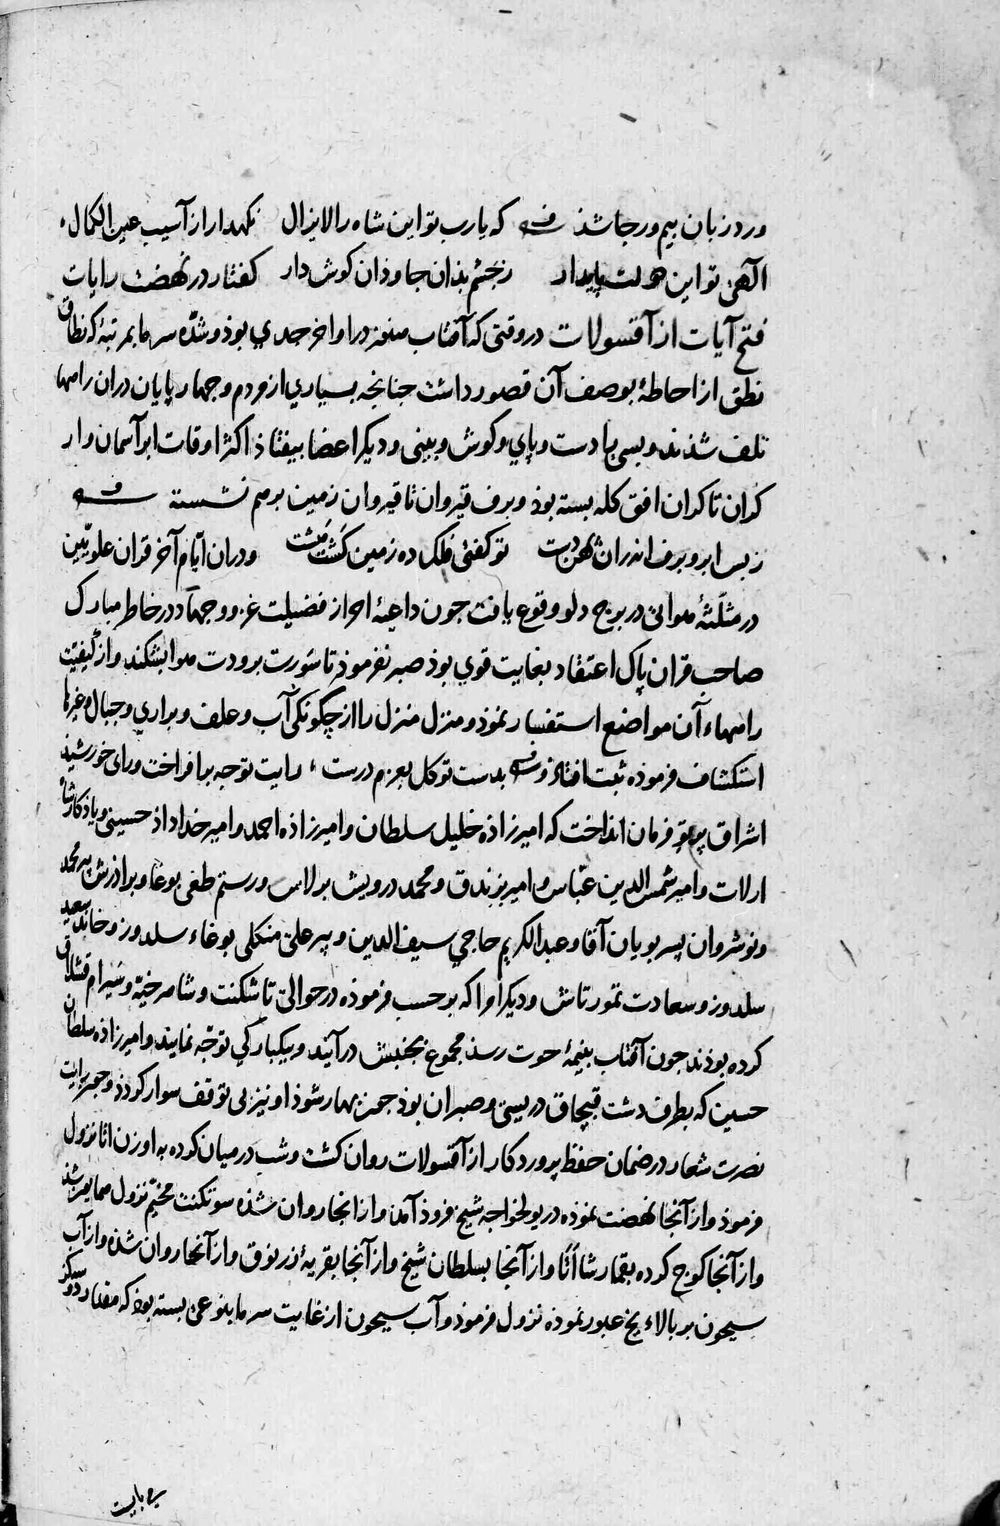 ورد زبان بیم و رجا شذ که یارب تو این شاه را لایزال نکهدار از آسیب عین الکمال
الهی تو این دولت پایدار زجشم بذان جاوذان کوش دار کفتار در نهضت رایات
فتح آیات از آقسولات در وقتی که آفتاب هنوز در اواخر جدی بوذ و شدّه سرما بمرتبهٔ که نطاق
نطق از احاطهٔ بوصف آن قصور داشت جنانجه بسیاری از مردم و جهار پایان دران راهها
تلف شذند و بسی را دست و پای و کوش و بینی و دیکر اعضا بیفتاذ اکثر اوقات ابر آسمان وار
کران تا کران افق کله بسته بوذ و برف قیروان تا قیروان زمین برهم نشسته
ز بس ابر و برف اندران کوه و دشت تو کفتی فلک ده زمین کشت هشت ودران ایّام آخر قران علویّین
در مثلّثهٔ هوائی در برج دلو وقوع یافت جون داعیهٔ احراز فضیلت غزو و جهاد در خاطر مبارک
صاحب قران پاک اعتقاد بغایت قوی بوذ صبر نفرموذ تا سَورت برودت هوا بشکند واز کیفیّت
راهها آن مواضع استفسار نموذ و منزل منزل را از چگونگی آب و علف و براری و جبال و غیرها
استکشاف فرموذه ثبت افتاذ بدست توکل بعزم درست رایت توجه برافراخت و رای خورشید
اشراق پرتو فرمان انداخت که امیرزاذه خلیل سلطان و امیرزاذه احمد و امیر خداداذ حسینی و یاذکار شاه
ارلات و امیر شمس الدین عبّاس و امیر برندق و محمد درویش برلاس و رستم طغی بوغا و براذرش پیر محمد
ونوشروان پسر بویان آقا و عبدالکریم حاجی سیف الدین و پیر علی منکلی بوغاء سلدوز و خانه سعید
سلدوز و سعادت تمورتاش و دیکر امرا که برحسب فرموذه در حوالی تاشکنت و شاهرخیّه و سَیرام قشلاق
کرده بوذند جون آفتاب بنیمهٔ حوت رسذ مجموع بجنبش درآیند و بیکبارکی توجّه نمایند و امیرزاذه سلطان
حسین که بطرف دشت قبچاق در یسی و صبران بوذ جون بهار شوذ او نیز بی توقف سوار کردذ و جون رایت
نصرت شعار در ضمان حفظ پروردکار از آقسولات روان کشت و شب در میان کرده به اوزن اتا نزول
فرموذ واز آنجا نهضت نموذه در یولخواجه شیخ فروذ آمد واز انجا روان شذه سوتکنت مخیّم نزول همایون شذ
واز آنجا کوج کرده بقمارشا اتا واز آنجا بسلطان شیخ واز آنجا بقریهٔ زرنوق واز آنجا روان شذه واز آب
سیحون بر بالاء یخ عبور نموذه نزول فرموذ و آب سیحون از غایت سرما بنوعی بسته بوذ که مقدار دو سه کز
می بایست